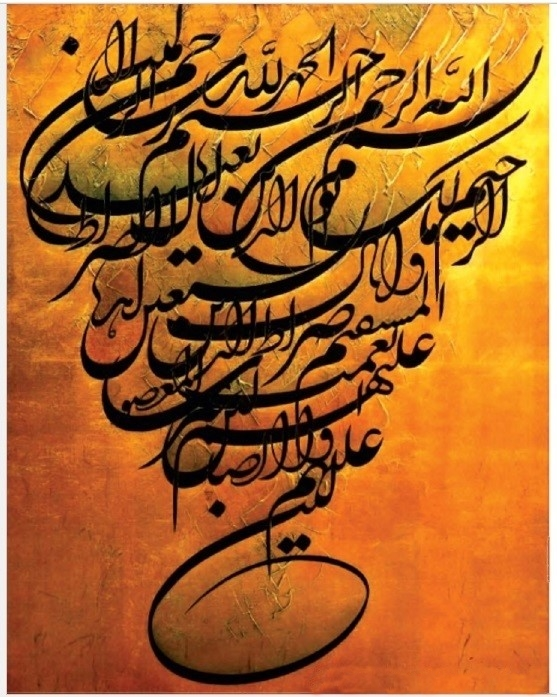 بسم الله الرحمن الرحيم
الحمد لله رب العالمين
الرحمن الرحيم
ملك يوم الدين
اياك نعبد واياك نستعين
اهدنا الصراط المستقيم
صراط الذين انعمت عليهم
غير المغضوب عليهم ولا الضالين